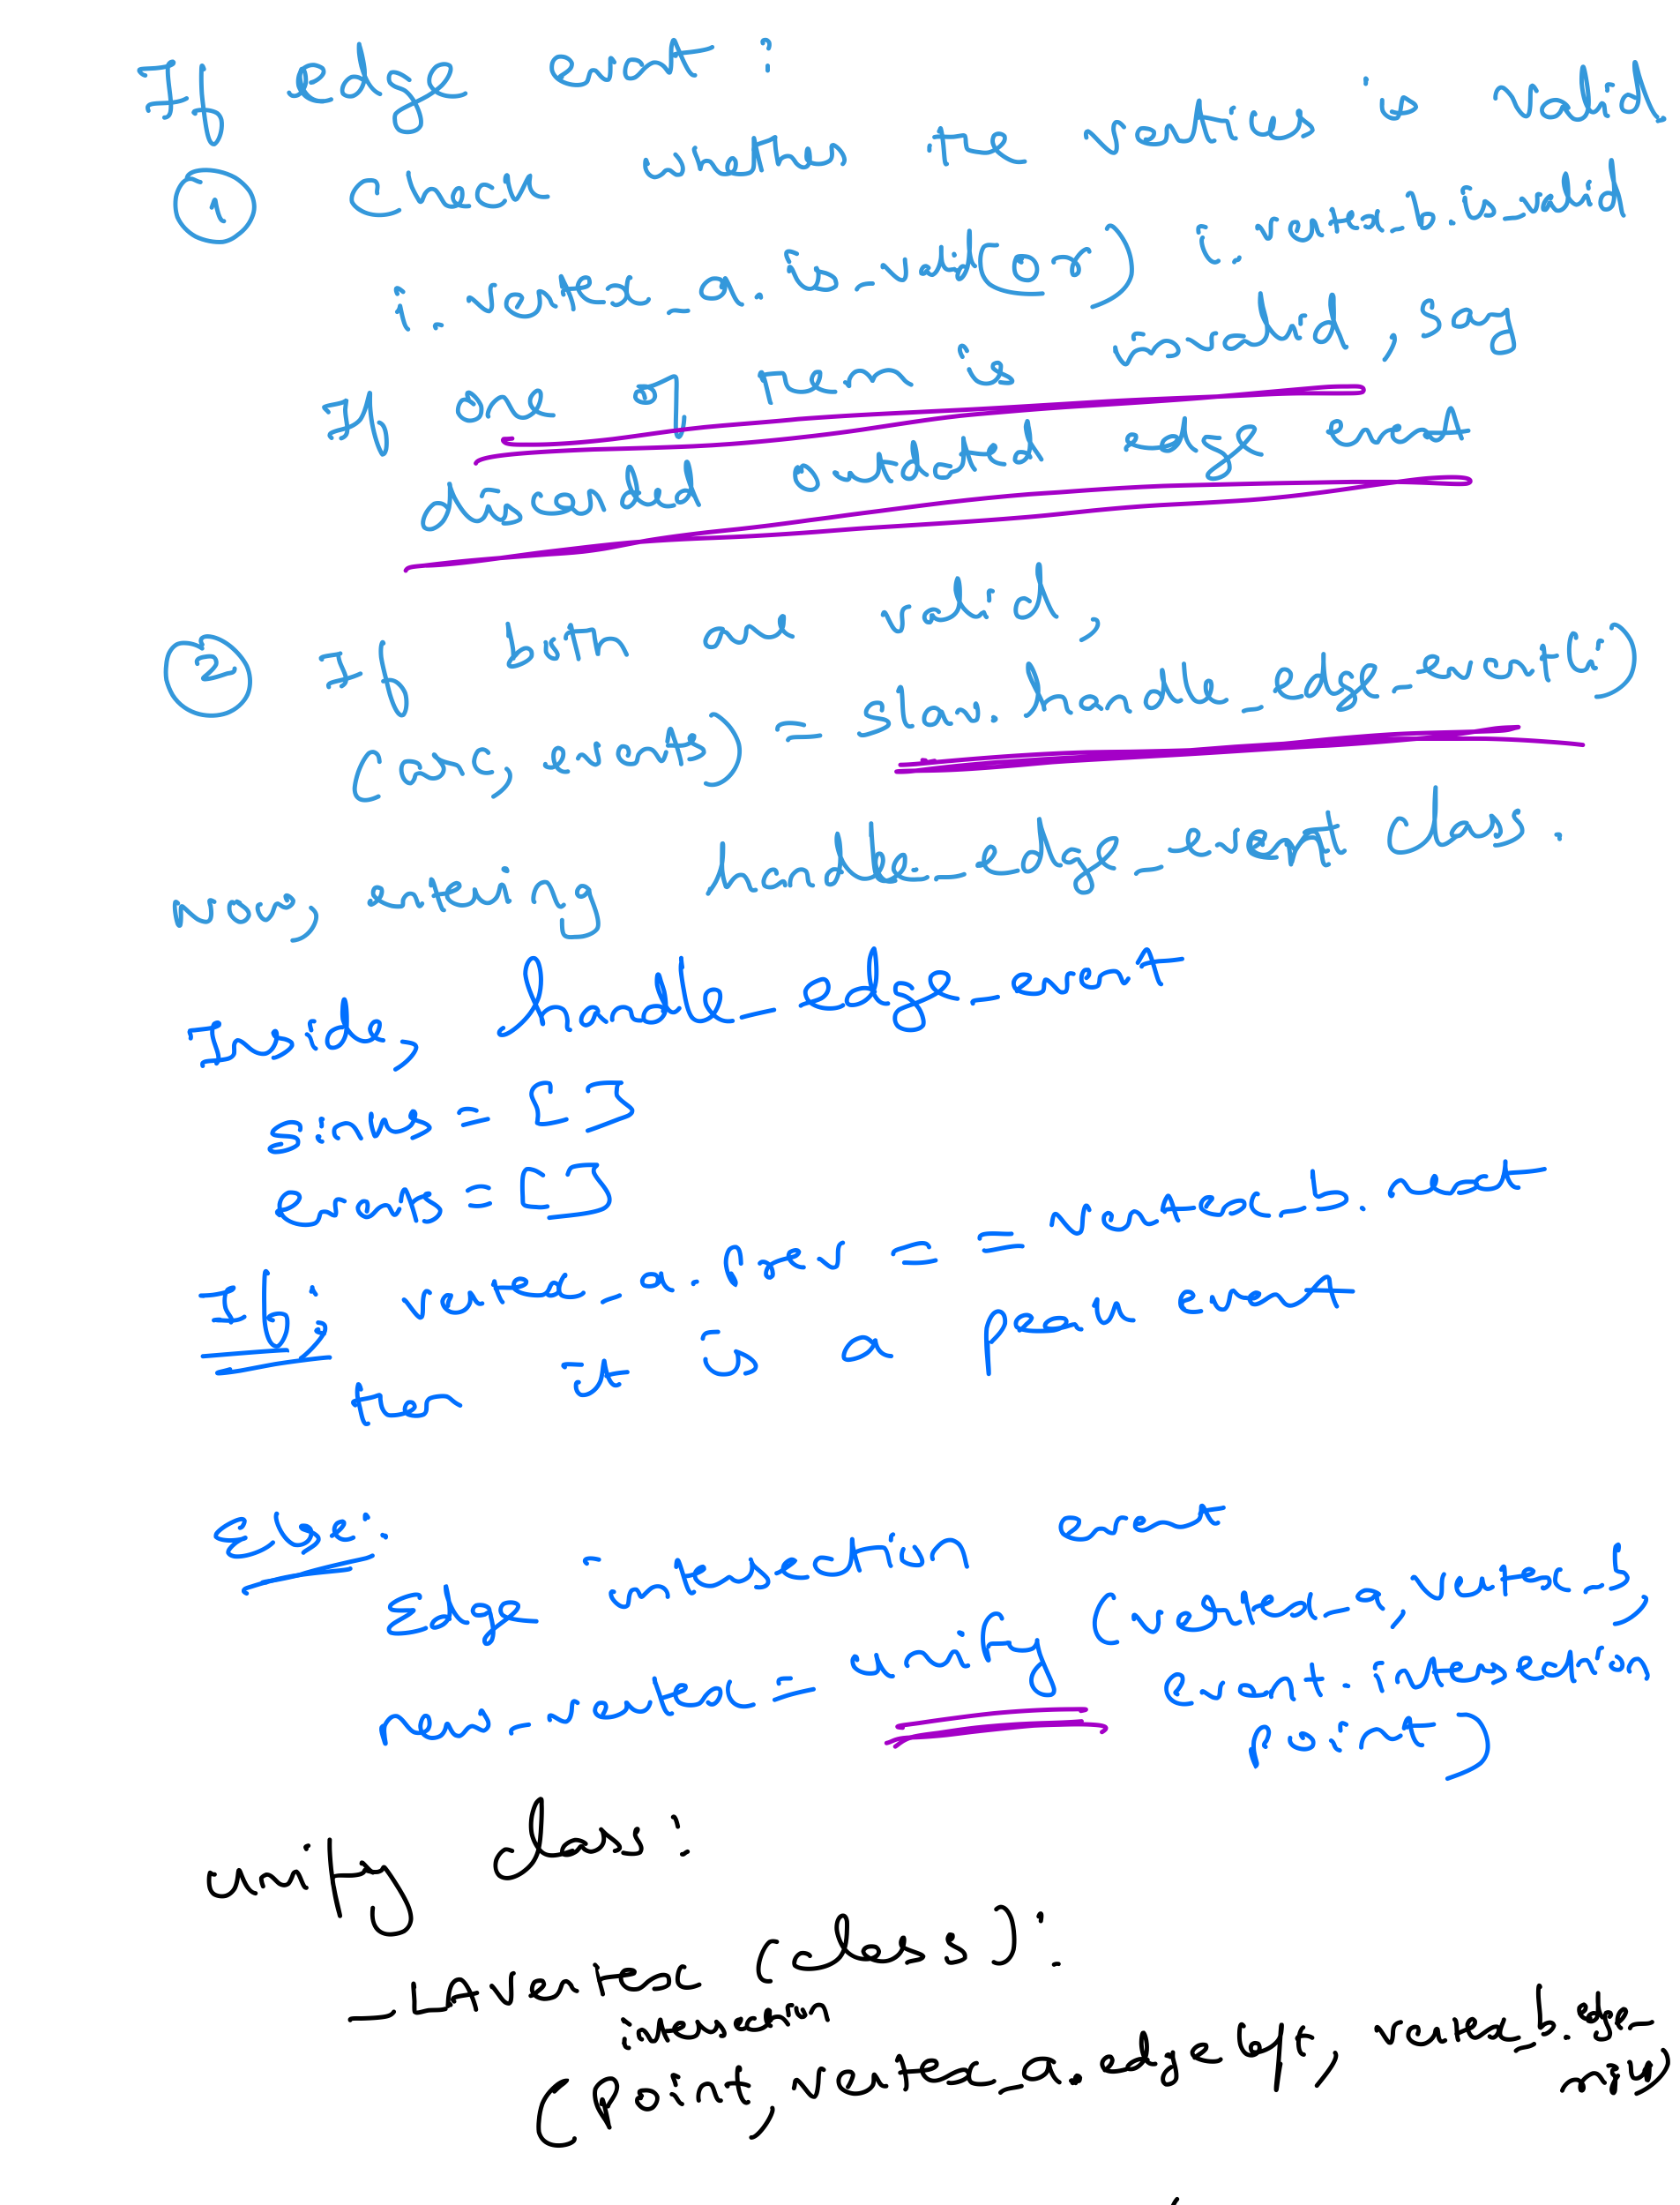 If edge event :
① Check whether the vertices is valid
i. vertex_a. is_valid (or) i. vertex_b. is_valid
If one of them is invalid, say
discarded outdated edge event
② If both are valid,
(arc, events) = slav. handle_edge_event(i)
Now, entering handle_edge_event class.
Inside, handle_edge_event
sinks = []
events = []
If; vertex_a. prev == vertex_b. next
then it is a peak event
Else:
Edge intersection event
new_vertex = unify (vertex_a, vertex_b,
event. intersection
point)
unify class:
_LAVertex (class):
intersection
(Point, vertex_a. edge left, vertex_b. edge_
right)